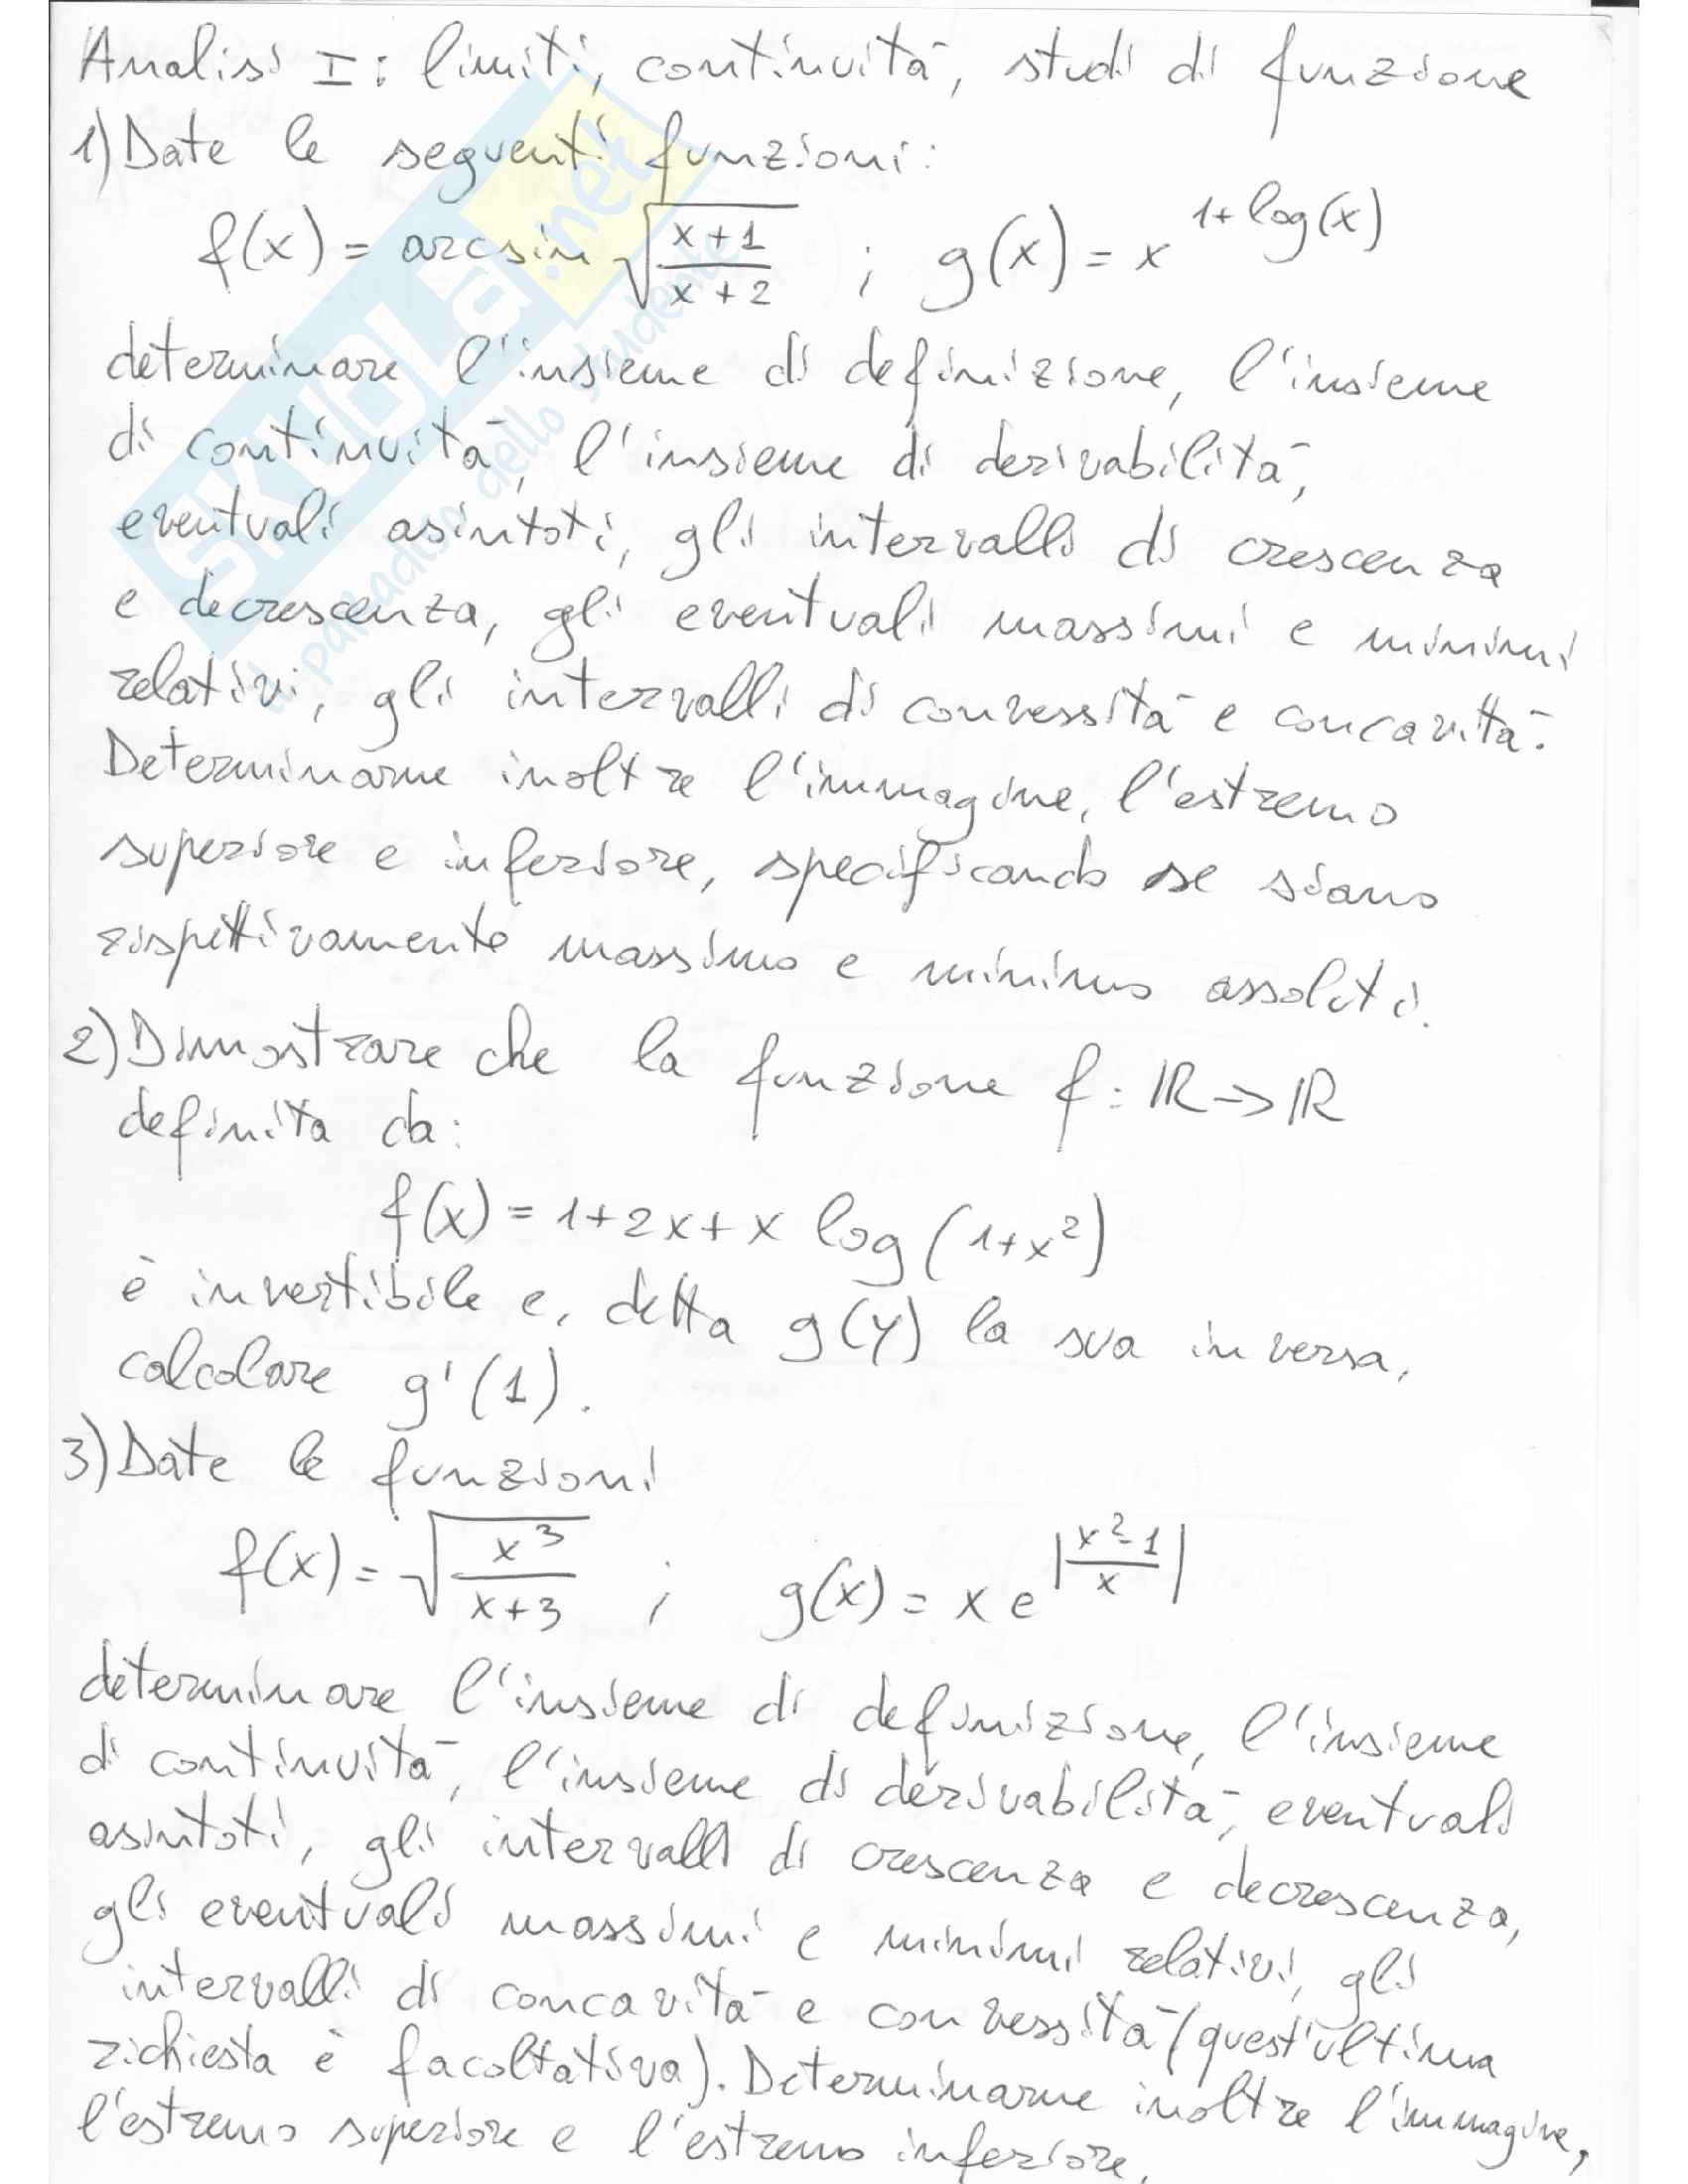 Analisi I: limiti, continuità, studi di funzione
1) Date le seguenti funzioni:
f(x) = arcsin √((x+1)/(x+2)) ; g(x) = x^(1+log(x))
determinare l'insieme di definizione, l'insieme
di continuità, l'insieme di derivabilità,
eventuali asintoti, gli intervalli di crescenza
e decrescenza, gli eventuali massimi e minimi
relativi, gli intervalli di convessità e concavità.
Determinarne inoltre l'immagine, l'estremo
superiore e inferiore, specificando se siano
rispettivamente massimo e minimo assoluti.
2) Dimostrare che la funzione f: ℝ → ℝ
definita da:
f(x) = 1+2x+x log(1+x²)
è invertibile e, detta g(y) la sua inversa,
calcolare g'(1).
3) Date le funzioni
f(x) = √(x³/(x+3)) ; g(x) = x e^|(x²-1)/x|
determinare l'insieme di definizione, l'insieme
di continuità, l'insieme di derivabilità, eventuali
asintoti, gli intervalli di crescenza e decrescenza,
gli eventuali massimi e minimi relativi, gli
intervalli di concavità e convessità (quest'ultima
richiesta è facoltativa). Determinarne inoltre l'immagine,
l'estremo superiore e l'estremo inferiore.
SKUOLA.net
il paradiso dello studente